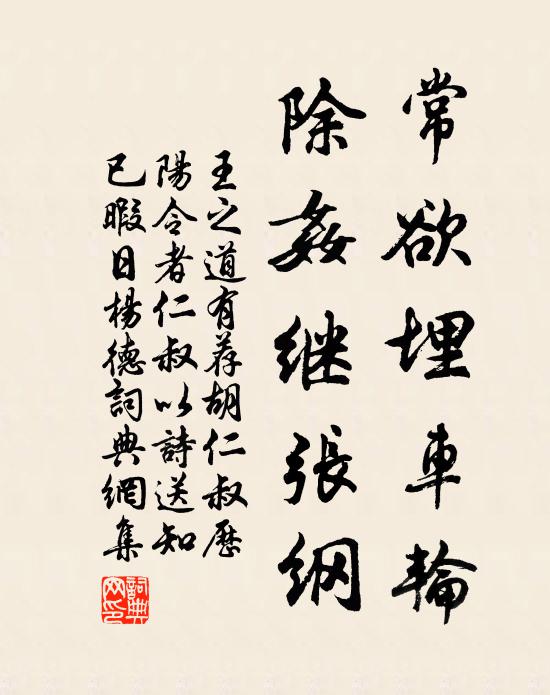 常欲埋車輪
除姦継張綱
王之道有荐胡仁叔歷
陽令者仁叔以詩送知
已暇日楊德詞典網集
詞典網印